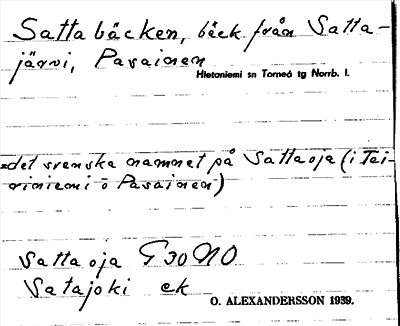 Sattabäcken, bäck från Satta-
järvi, Pasainen
Hietaniemi sn Torneå tg Norrb. l.
=det svenska namnet på Sattaoja (i Tai-
viniemi o Pasainen)
Sattaoja G 30 NO
Satajoki ek
O. ALEXANDERSSON 1939.